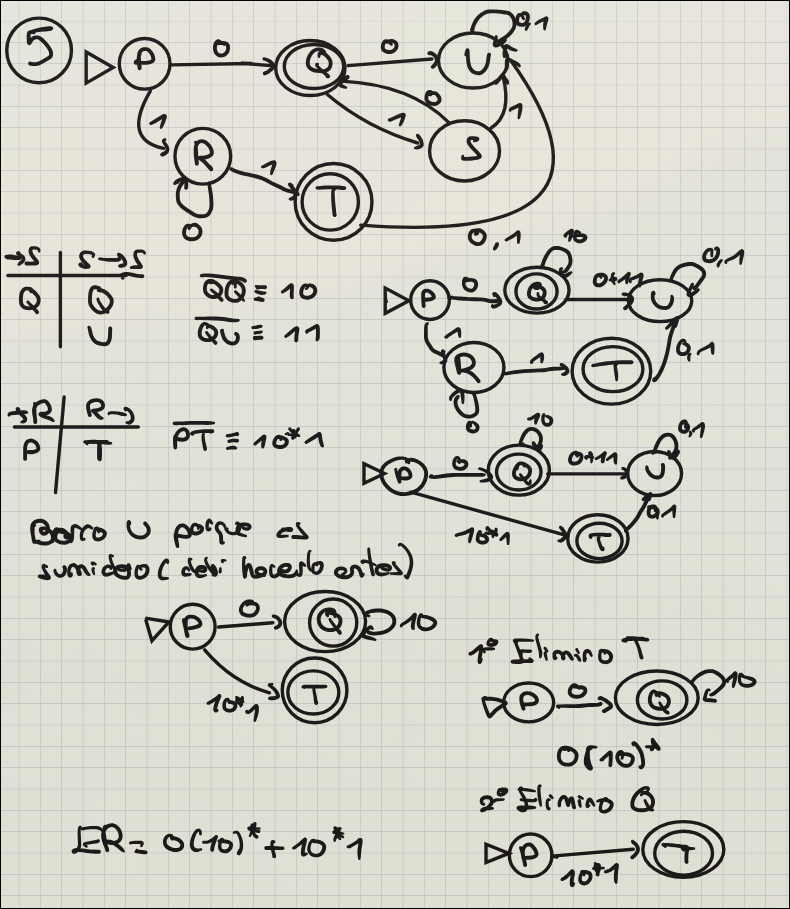 5
P 0 Q 0 U 0,1
1 0 1 1
R 1 T S
0 0,1
→S | S→S
Q | Q
U
QQ ≡ 10
QU ≡ 11
P 0 Q 10 0+11 U 0,1
1
R 1 T 0,1
0
→R | R→
P | T
PT ≡ 10*1
P 0 Q 10 0+11 U 0,1
10*1 T 0,1
Borro U porque es
sumidero (debi hacerlo antes)
P 0 Q 10
10*1 T
1º Elimino T
P 0 Q 10
0(10)*
2º Elimino Q
P 10*1 T
ER= 0(10)* + 10*1